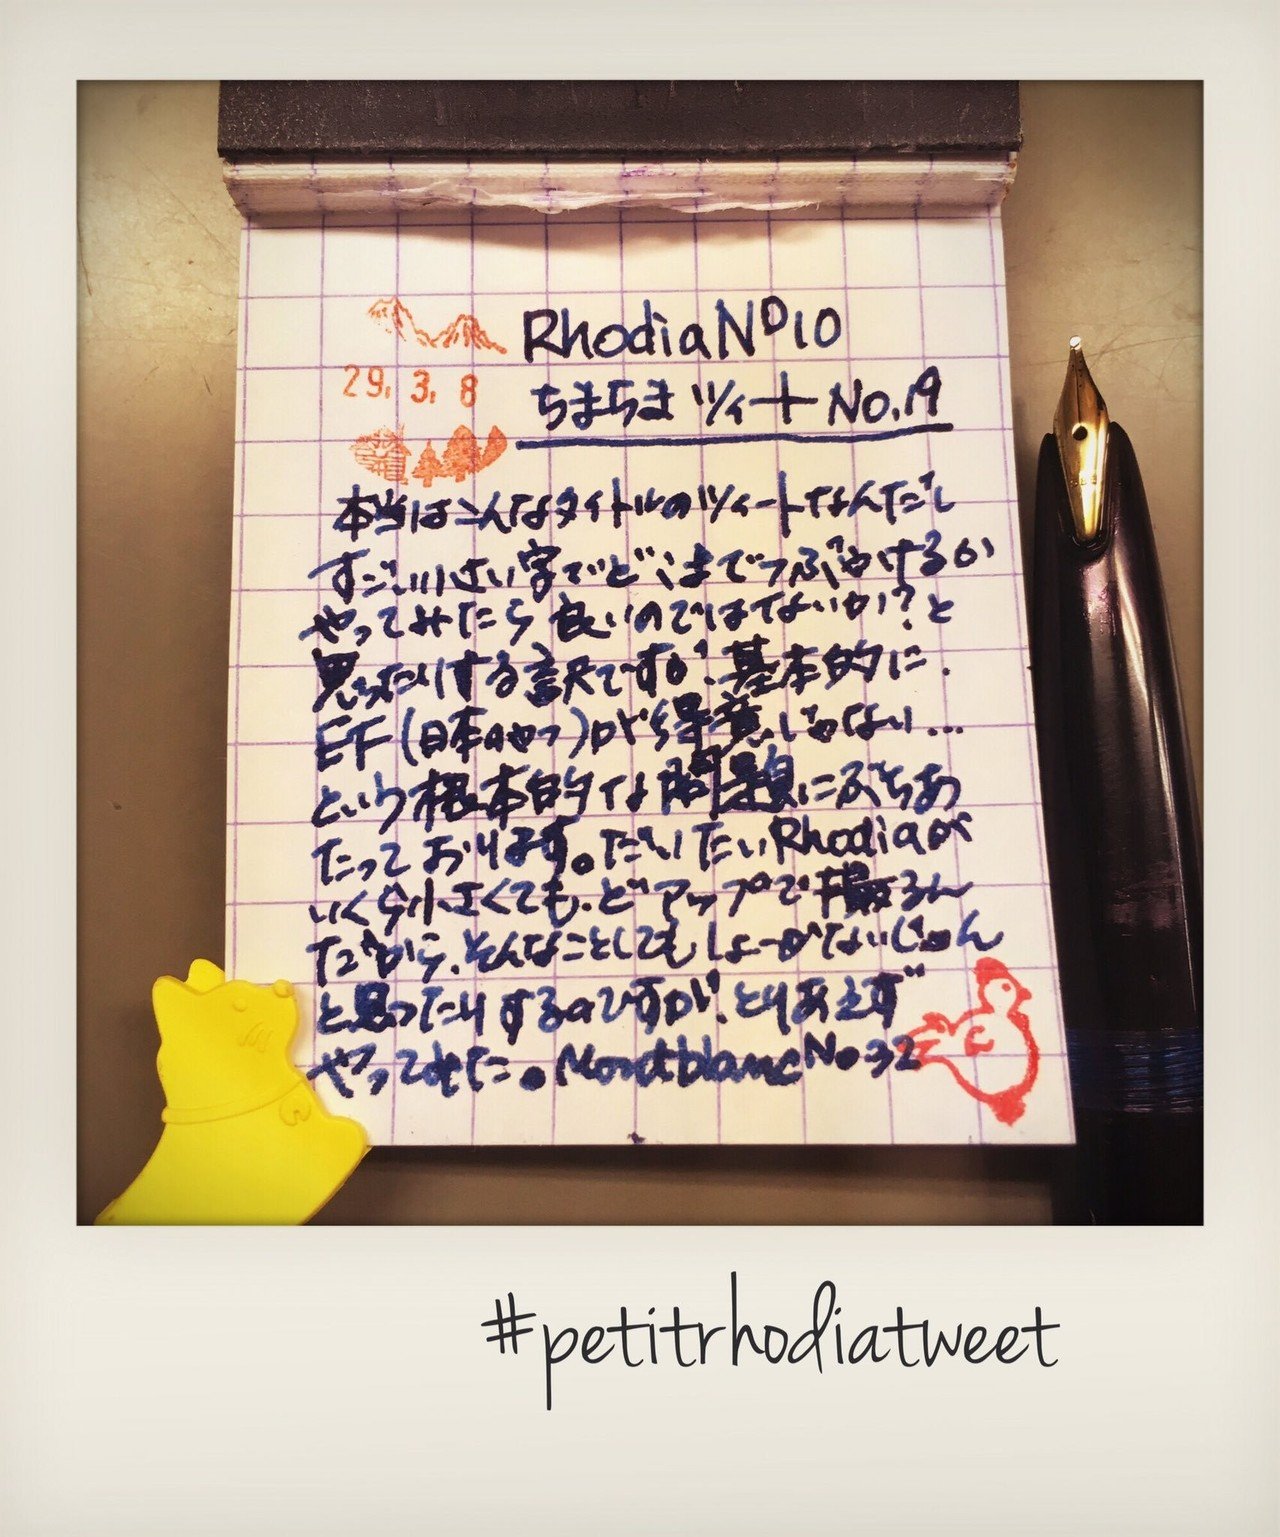 Rhodia No10
29. 3. 8
ちまちまツィート No.19
本当はこんなタイトルのツィートなんだし
すごい小さい字でどこまでつぶやけるか
やってみたら良いのではないか?と
思ったりする訳ですが、基本的に、
EF(日本のやつ)が得意じゃない...
という根本的な問題にぶちあ
たっております。だいたいRhodiaが
いくら小さくても、どアップで撮るん
だから、そんなことしてもしょーがないじゃん
と思ったりするのですが、とりあえず
やってみた。Montblanc No 32
#petitrhodiatweet